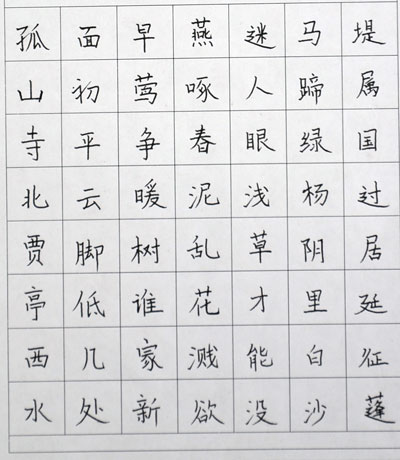 孤山寺北贾亭西水
面初平云脚低几处
早莺争暖树谁家新
燕啄春泥乱花溅欲
迷人眼浅草才能没
马蹄绿杨阴里白沙
堤属国过居延征蓬